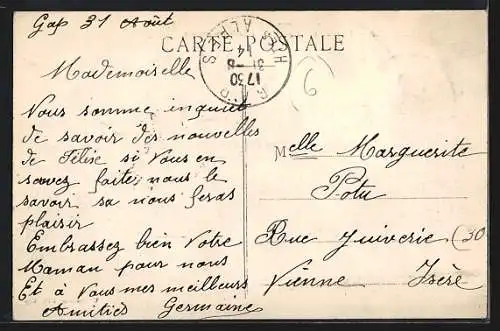 Gap 31 Août
CARTE POSTALE
GAP
17 30
31 - 8
14
Htes ALPES
6
Mademoiselle
Vous somme inquiet
de savoir des nouvelles
de Félise si Vous en
savez faite nous le
savoir sa nous feras
plaisir
Embrassez bien Votre
Maman pour nous
Et à Vous mes meilleurs
Amitiés Germaine
Melle Marguerite
Potu
Rue Juiverie (30
Vienne Isère